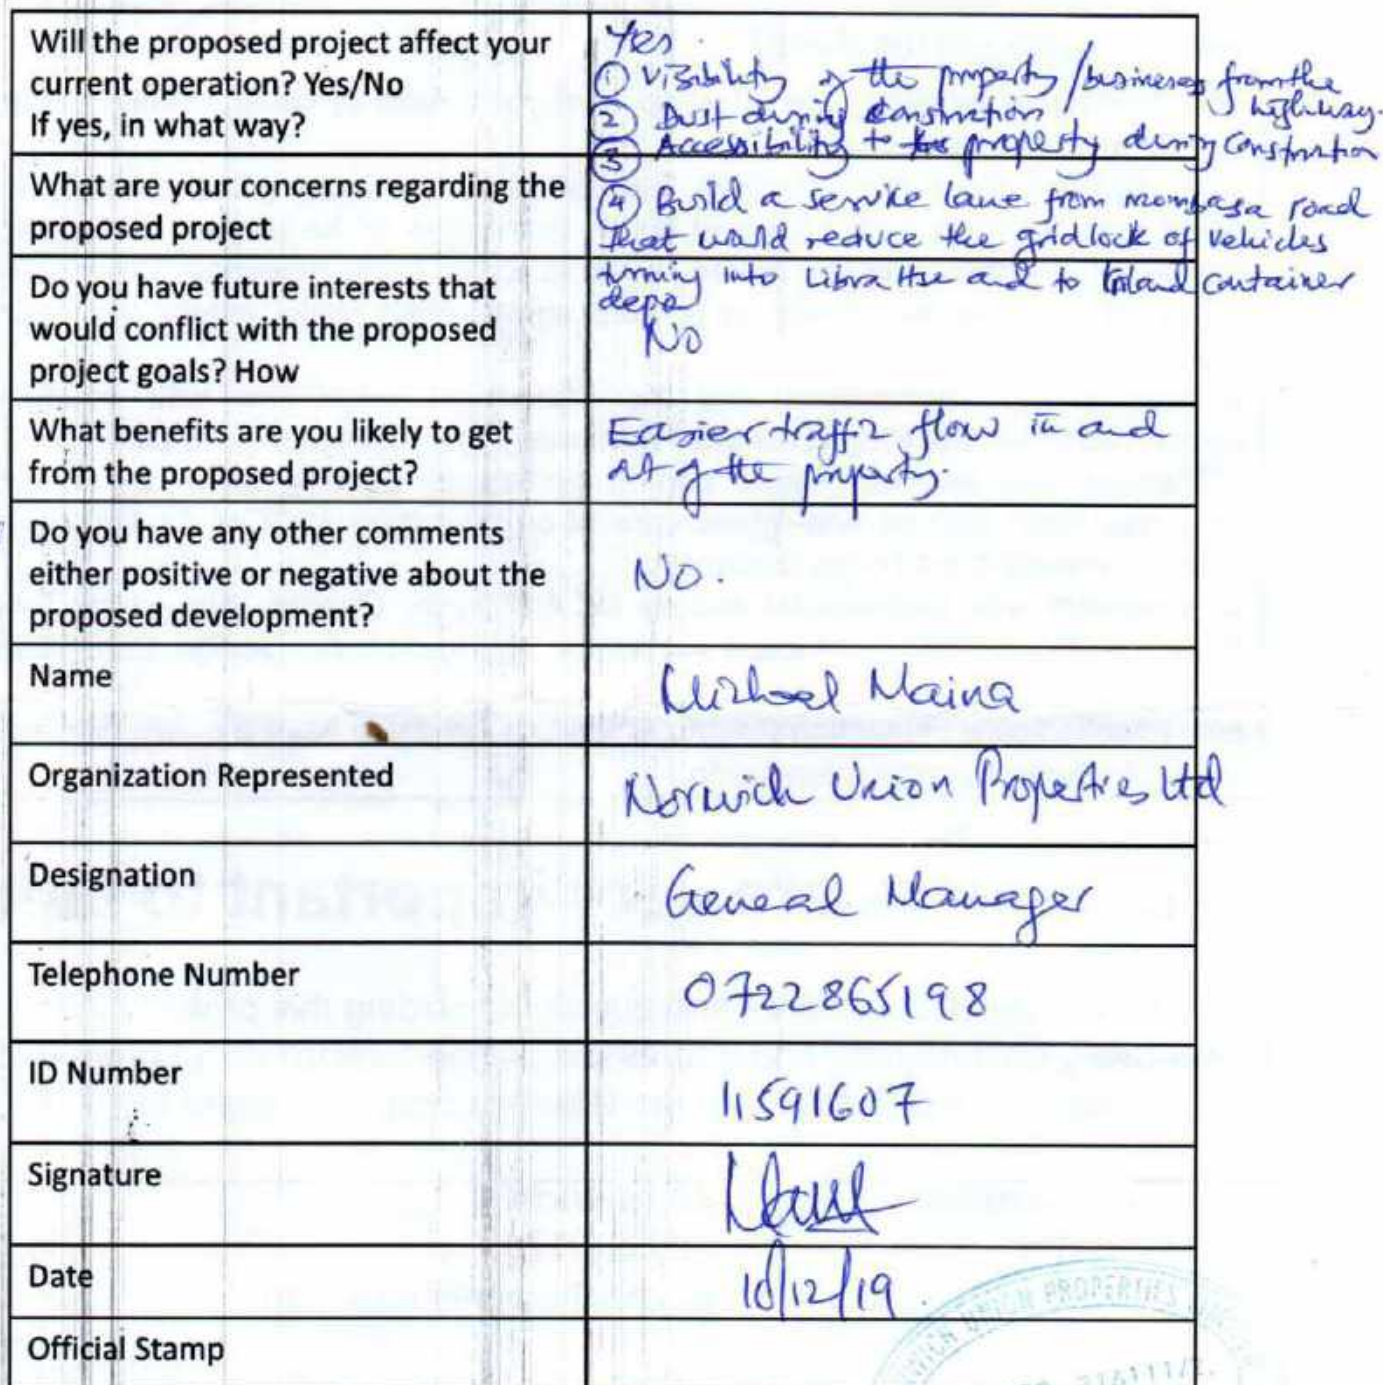 Will the proposed project affect your
current operation? Yes/No
If yes, in what way?
Yes.
① Visibility of the property/business from the
highway.
② Dust during construction
③ Accessibility to the property during construction
What are your concerns regarding the
proposed project
④ Build a service lane from mombasa road
that would reduce the gridlock of vehicles
turning into Libra Hse and to Inland container
depo
Do you have future interests that
would conflict with the proposed
project goals? How
No
What benefits are you likely to get
from the proposed project?
Easier traffic flow in and
out of the property.
Do you have any other comments
either positive or negative about the
proposed development?
No.
Name
Michael Maina
Organization Represented
Norwich Union Properties Ltd
Designation
General Manager
Telephone Number
0722865198
ID Number
11591607
Signature
Date
10/12/19
Official Stamp
UNION PROPERTIES